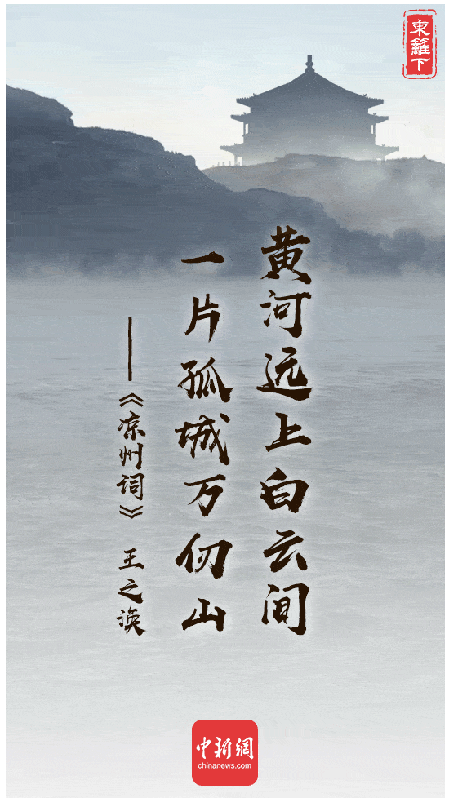 東籬下
黄河远上白云间
一片孤城万仞山
——《凉州词》 王之涣
中新網
chinanews.com